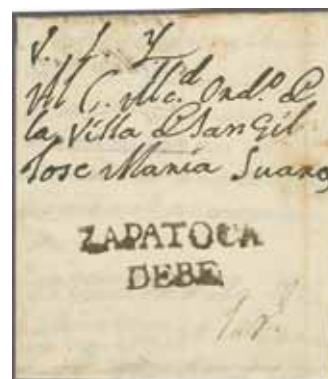 Al C. Alc.d Ord.o d
la Villa d San Gil
Jose Maria Suares
ZAPATOCA
DEBE